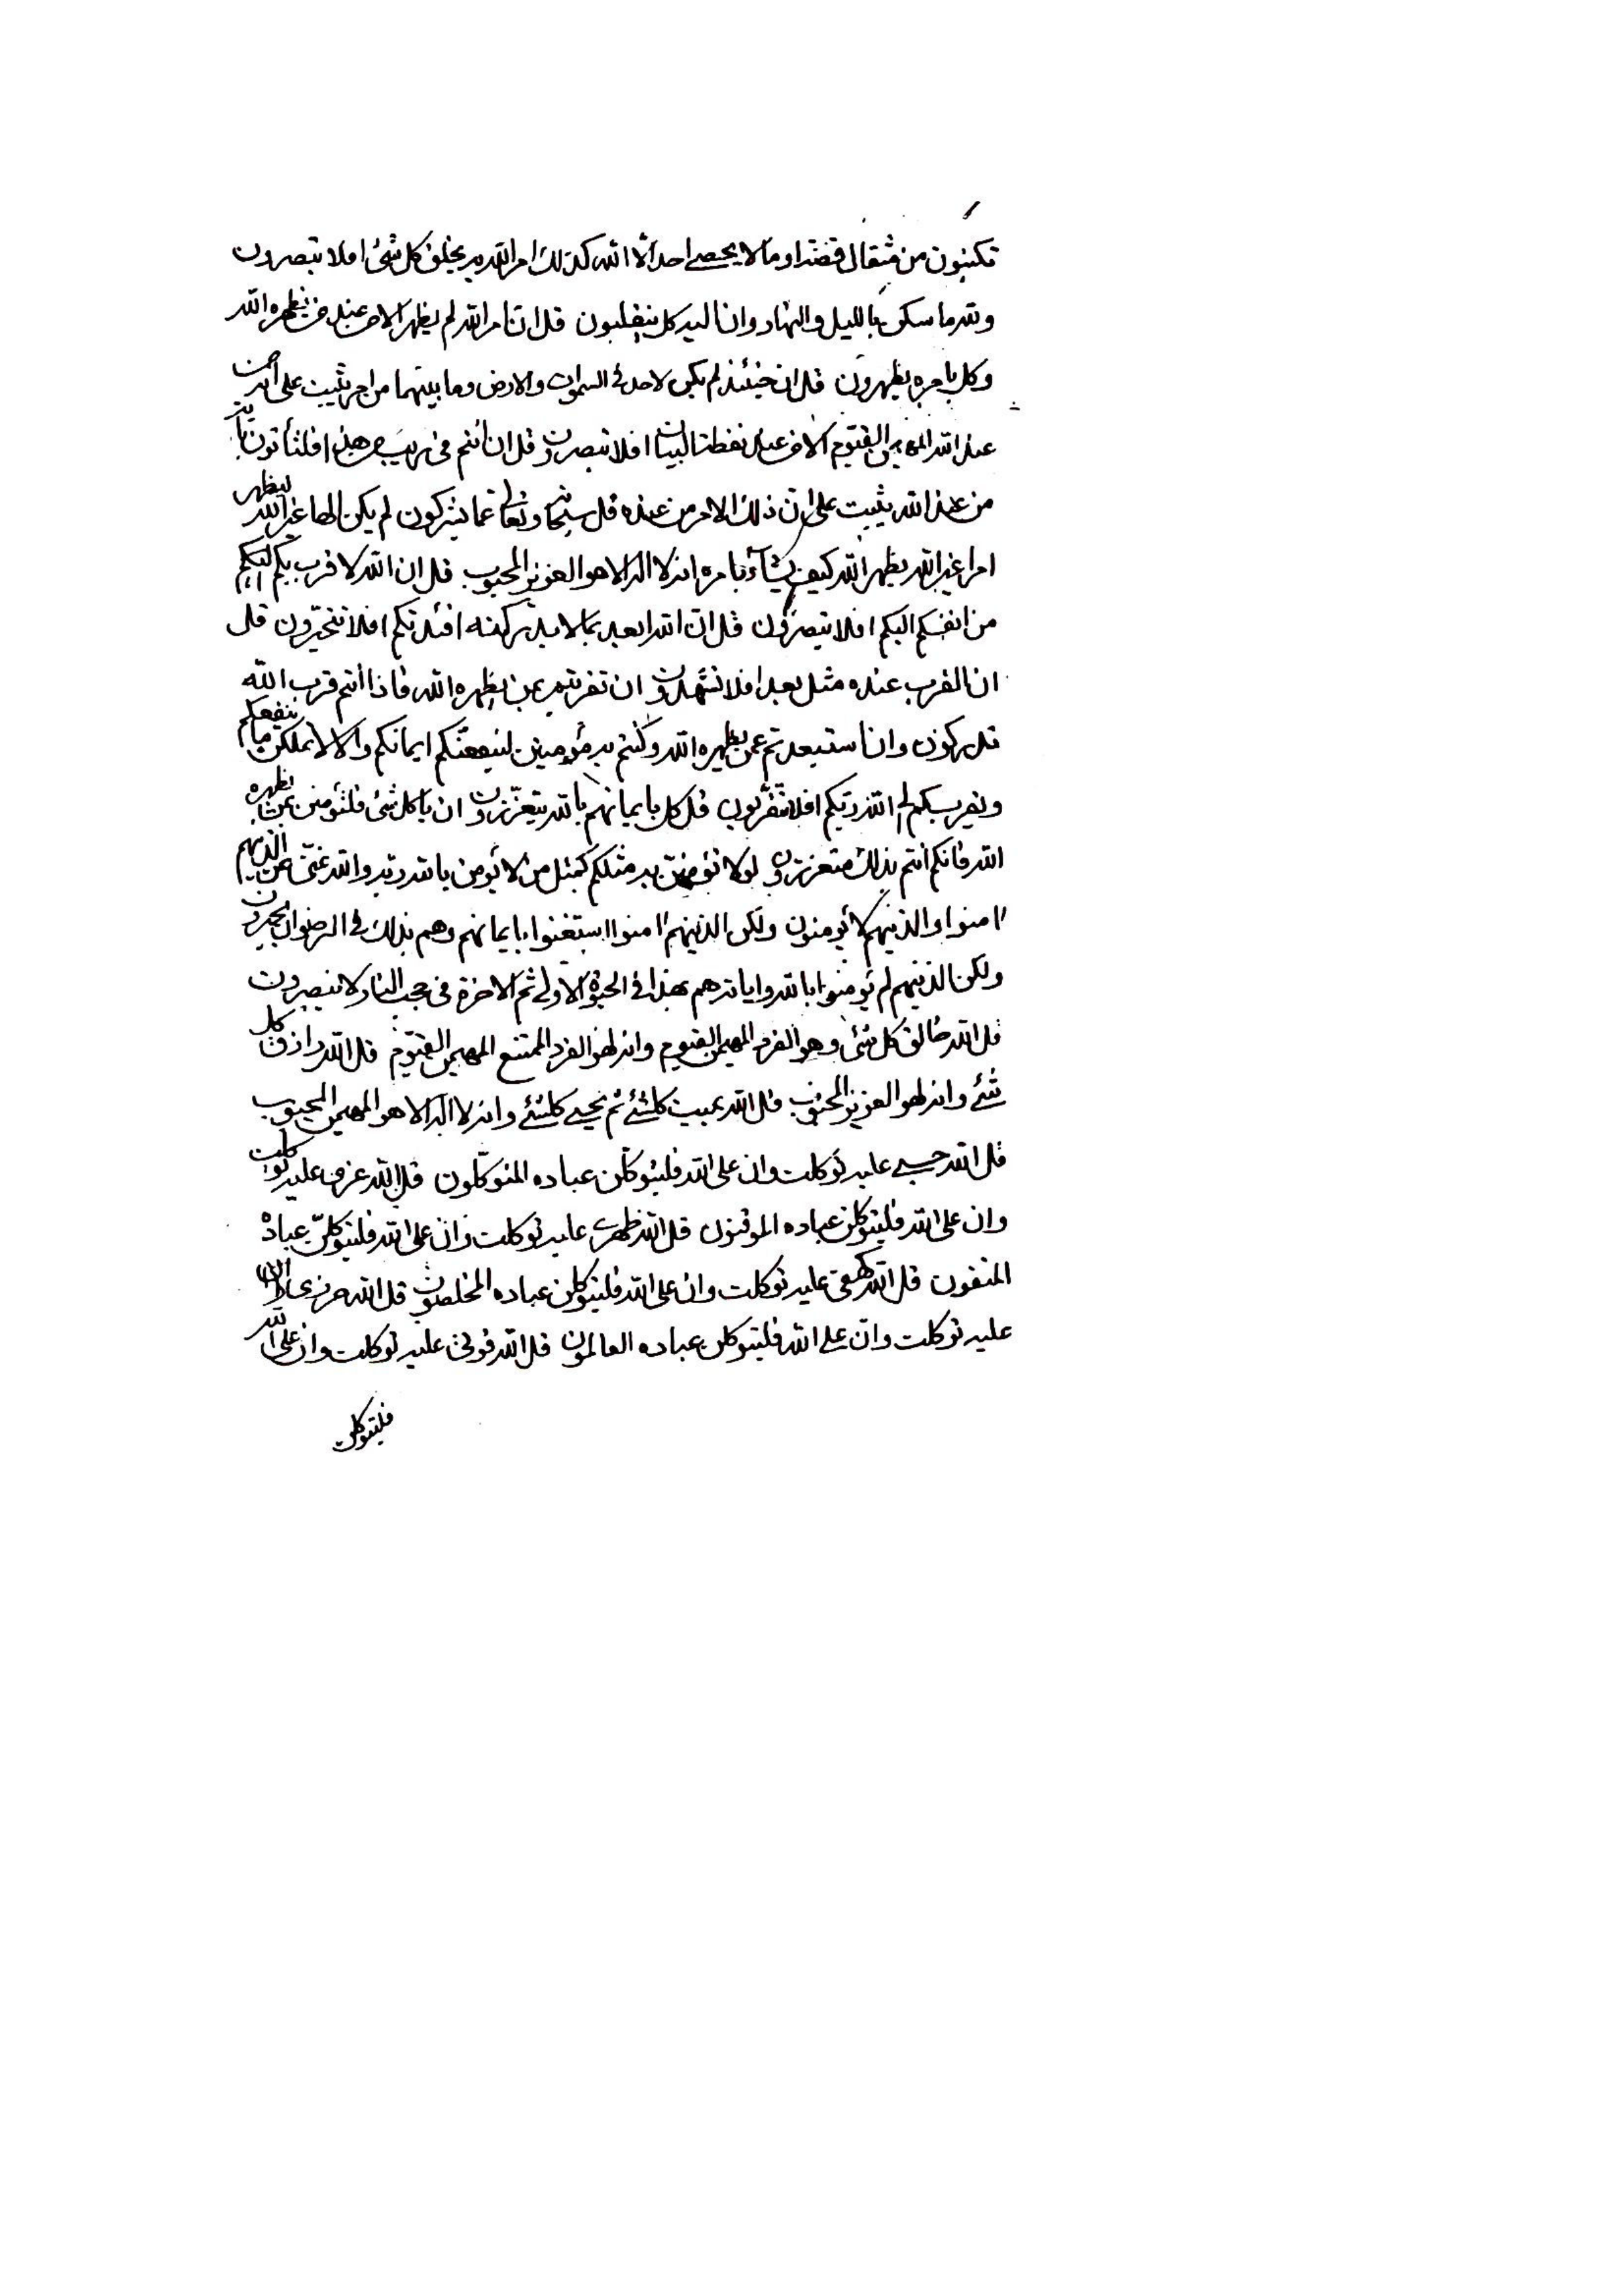 تكنبون من مثقال فضة او ما لا يحصي احدا الا الله كذلك امر الله به يخلق كل شئ افلا تبصرون
ولله ما سكن بالليل والنهار وانا اليه كل ينقلبون قل ان امر الله لم يظهر الا من عند من يظهره الله
وكل بامره يظهرون قل ان حينئذ لم يكن لاحد في السموات والارض وما بينهما من اجر يثبت على انه من
عند الله المهيمن القيوم الا من عند نقطة البيان افلا تبصرون وقل ان انتم في ريب من هذا فلتأتون باية
من عند الله يثبت على ان ذلك الامر من عنده قل سبحانه وتعالى عما يشركون لم يكن الها غير الله ليظهر
امرا غير الله يظهر الله كيف يشاء بامره انه لا اله الا هو العزيز المحبوب قل ان الله لاقرب بكم اليكم
من انفسكم اليكم افلا تبصرون قل ان الله ابعد بما لا يدركنه افئدتكم افلا تتحيرون قل
ان القرب عنده مثل بعد افلا تشهدون وان تقربتم بمن يظهره الله فاذا انتم قرب الله
تدركون وان استبعدتم عمن يظهره الله وكنتم به مؤمنين لينفعنكم ايمانكم والا لا تملكن ما ينفعكم
ويقربكم الى الله ربكم افلا تتقربون قل كل بايمانهم بالله يتعززون ان يا كل شئ فلتؤمنن بمن يظهره
الله فانكم انتم بذلك متعززون لولا تؤمنن به مثلكم كمثل من لا يؤمن بالله ربه والله غني عن الذينهم
امنوا والذينهم لا يؤمنون ولكن الذينهم امنوا استغنوا بايمانهم وهم بذلك في الرضوان يحبرون
ولكن الذينهم لم يؤمنوا بالله واياته هم بهذا في الحيوة الاولى ثم الاخرة في حجب النار لا يبصرون
قل الله خالق كل شئ وهو الفرد المهيمن القيوم وانه لهو الفرد الممتنع المهيمن القيوم قل الله رازق كل
شئ وانه لهو العزيز المحبوب قل الله يميت كلشئ ثم يحيي كلشئ وانه لا اله الا هو المهيمن المحبوب
قل الله حسبي عليه توكلت وان على الله فليتوكلن عباده المتوكلون قل الله عزي عليه توكلت
وان على الله فليتوكلن عباده الموقنون قل الله ظهري عليه توكلت وان على الله فليتوكلن عباده
المتقون قل الله كهفي عليه توكلت وان على الله فليتوكلن عباده المخلصون قل الله حرزي
عليه توكلت وان على الله فليتوكلن عباده العالمون قل الله قوتي عليه توكلت وان على الله
فليتوكلن